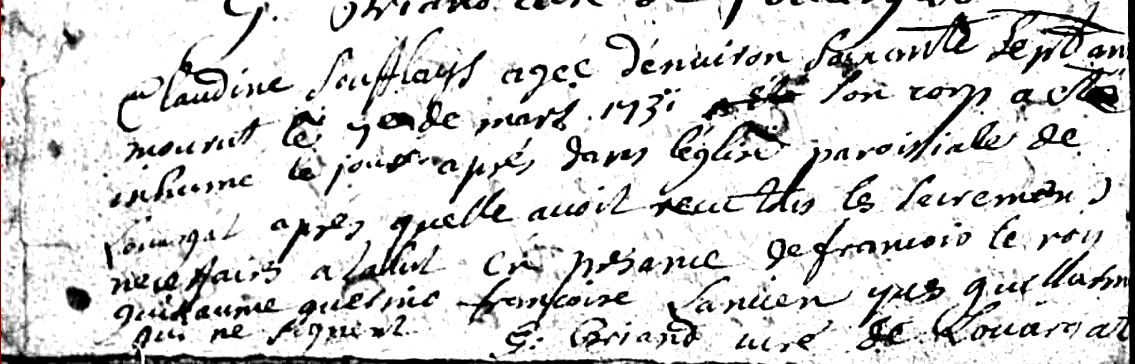 G. Briand curé de Louargat
Claudine Soufflays agee denuiron soixante sept ans
mourut le 7e de mars 1731 son corp a eté
inhume le jour aprés dans l'église paroissiales de
Louargat aprés quelle auoit recu tous les sacremens
necessairs a salut en présance de francois le roy
guillaume guerino francoise Lancien yues guillarm
qui ne signent G. Briand curé de Louargat